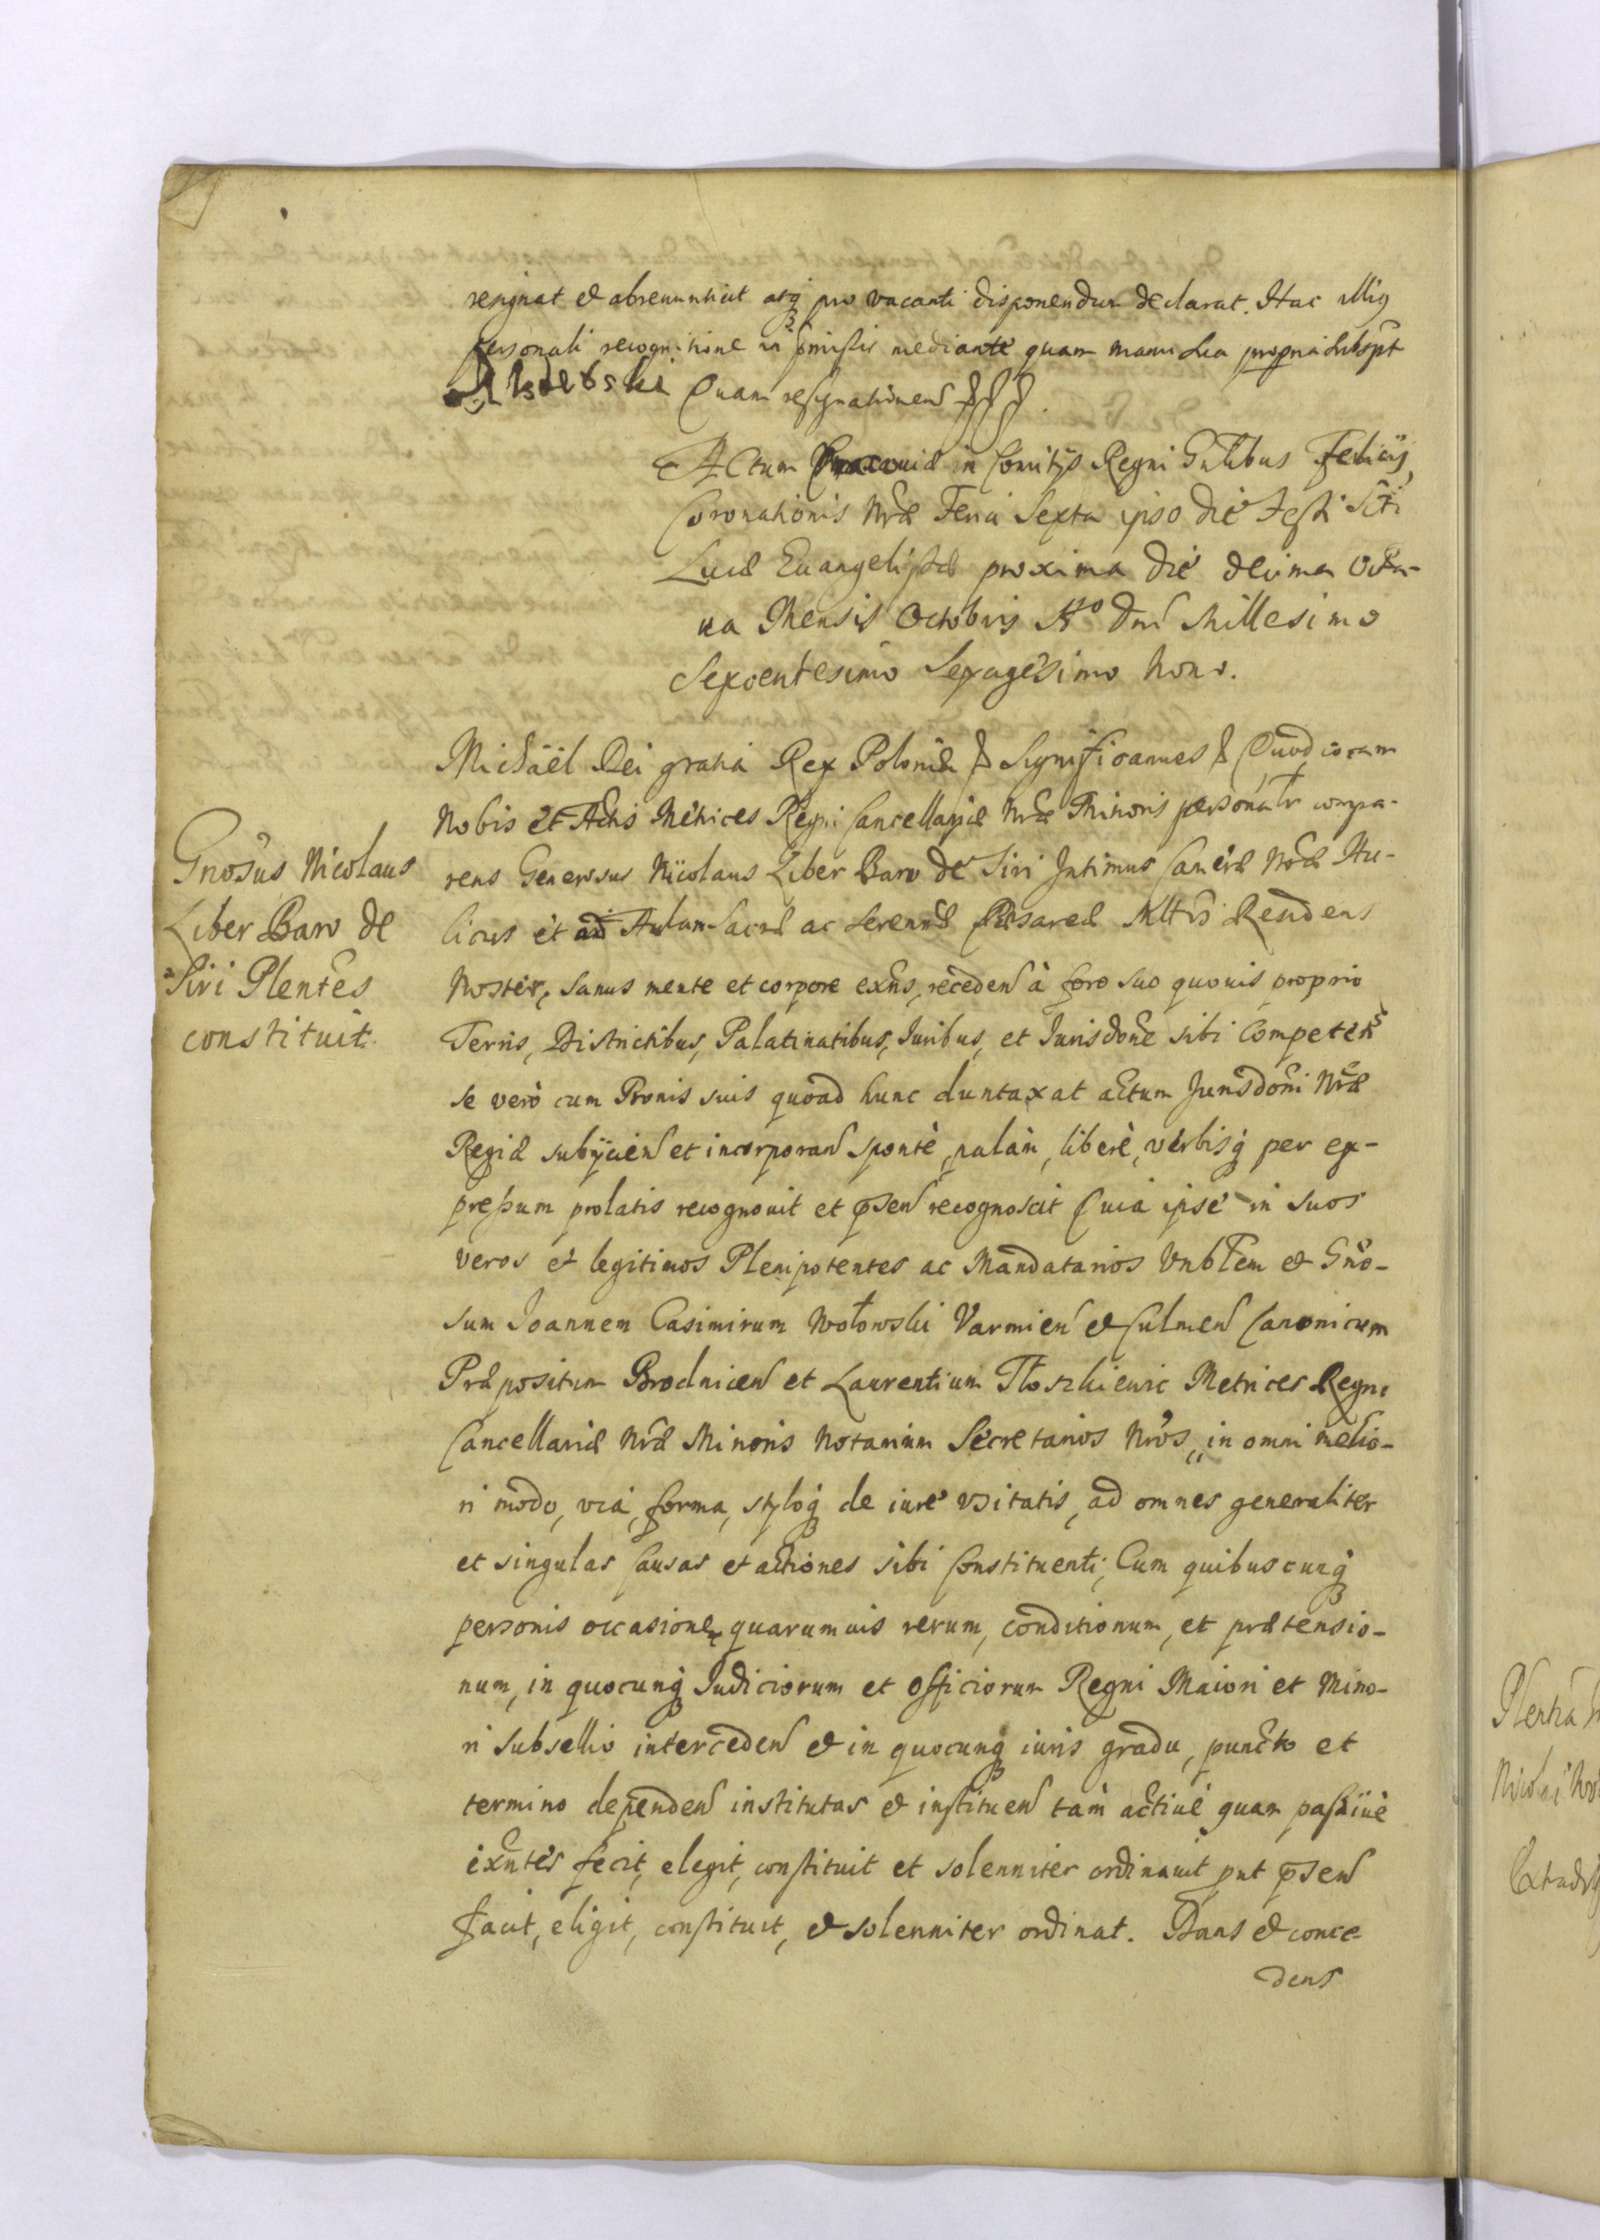 resignat et abrenuntiat atq pro vacanti disponendum declarat. Hac illius
personali recognitione in pmissis mediante quam manu sua propria subspt
Quam resignationem
Actum Cracoviæ in Comitijs Regni Gnlibus Felicis
Coronationis Nræ Feria Sexta ipso die Festi Scti
Lucæ Euangelistæ proxima die decima octa-
ua Mensis Octobris Ao Dni Millesimo
Sexcentesimo Sexagesimo Nono.
Michäel Dei gratia Rex Poloniæ Significamus Quod coram
Nobis et Actis Metrices Regni Cancellariæ Nræ Minoris personalr compa-
rens Generosus Nicolaus Liber Baro de Siri Intimus Cameræ Nræ Au-
licus et ad Aulam Sacræ ac Serenmæ Cæsareæ Mttis Residens
Noster, sanus mente et corpore exns, receden à foro suo quouis proprio
Terris, Districtibus, Palatinatibus, Iuribus, et Iurisdone sibi Competen
se verò cum Bonis suis quoad hunc duntaxat actum Jurisdoni Nræ
Regiæ subijcien et incorporan spontè, palàm, liberè, verbisq per ex-
pressum prolatis recognouit et psen recognoscit Quia ipse in suos
veros et legitimos Plenipotentes ac Mandatarios Vnblem et Gno-
sum Joannem Casimirum Wołowski Varmien et Culmen Canonicum
Præpositum Brodnicen et Laurentium Tłoszkiewic Metrices Regni
Cancellariæ Nræ Minoris Notarium Secretarios Nros, in omni melio-
ri modo, via, forma, styloq de iure vsitatis, ad omnes generaliter
et singulas Causas et actiones sibi Constituenti, Cum quibuscunq
personis occasione quarumuis rerum, conditionum, et prætensio-
num, in quocunq Iudiciorum et Officiorum Regni Maiori et Mino-
ri subsellio interceden et in quocunq iuris gradu, puncto et
termino dependen institutas et instituen tàm actiuè quam passiuè
exntes fecit, elegit, constituit et solenniter ordinauit put psen
facit, eligit, constituit, et solenniter ordinat. Dans et conce-
dens
Gnosus Nicolaus
Liber Baro de
Siri Plentes
constituit.